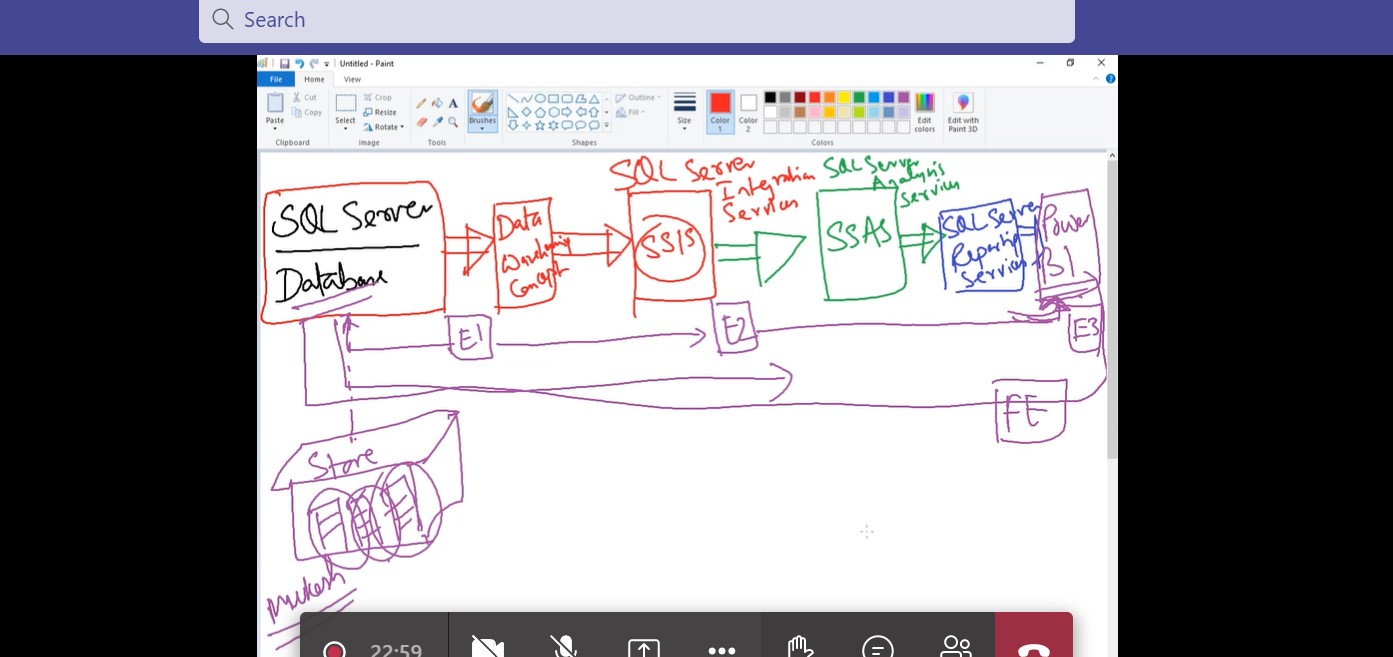 Search
Untitled - Paint
File
Home
View
Paste
Cut
Copy
Clipboard
Select
Crop
Resize
Rotate
Image
Tools
Brushes
Shapes
Outline
Fill
Size
Color 1
Color 2
Colors
Edit colors
Edit with Paint 3D
SQL Server
Database
Data
Warehousing
Concept
SQL Server
Integration
Services
SSIS
SQL Server
Analysis
Services
SSAS
SQL Server
Reporting
Services
Power
BI
E1
E2
E3
FE
Store
Mukesh
22:59